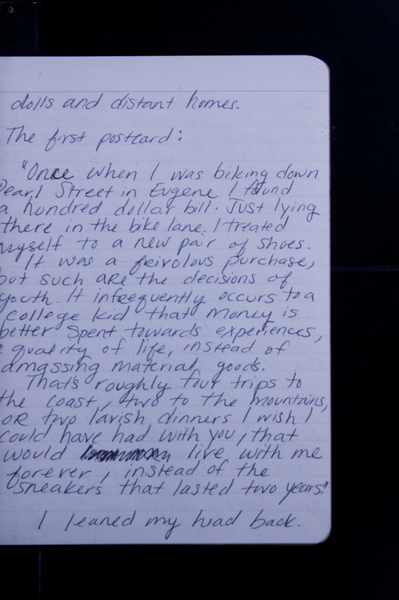 dolls and distant homes.
The first postcard:
"Once when I was biking down
Pearl Street in Eugene I found
a hundred dollar bill. Just lying
there in the bike lane. I treated
myself to a new pair of shoes.
It was a feivolous purchase,
but such are the decisions of
youth. It infrequently occurs to a
college kid that money is
better spent towards experiences,
quality of life, instead of
amassing material goods.
That's roughly four trips to
the coast, two to the mountains,
or two lavish dinners I wish I
could have had with you, that
would live with me
forever, instead of the
sneakers that lasted two years."
I leaned my head back.